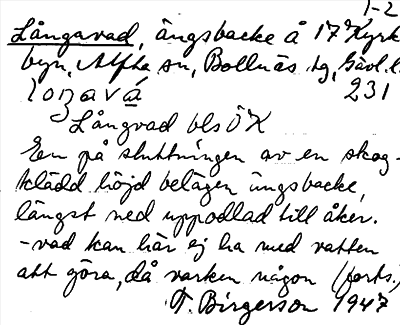 1-2
Långavad, ängsbacke å 17 Kyrk-
byn, Alfta sn, Bollnäs tg, Gävl. l.
loŋavá 231
Långvad bls ÖK
En på sluttningen av en skog-
klädd höjd belägen ängsbacke,
längst ned uppodlad till åker.
-vad kan här ej ha med vatten
att göra, då varken någon (forts.)
T. Birgerson 1947